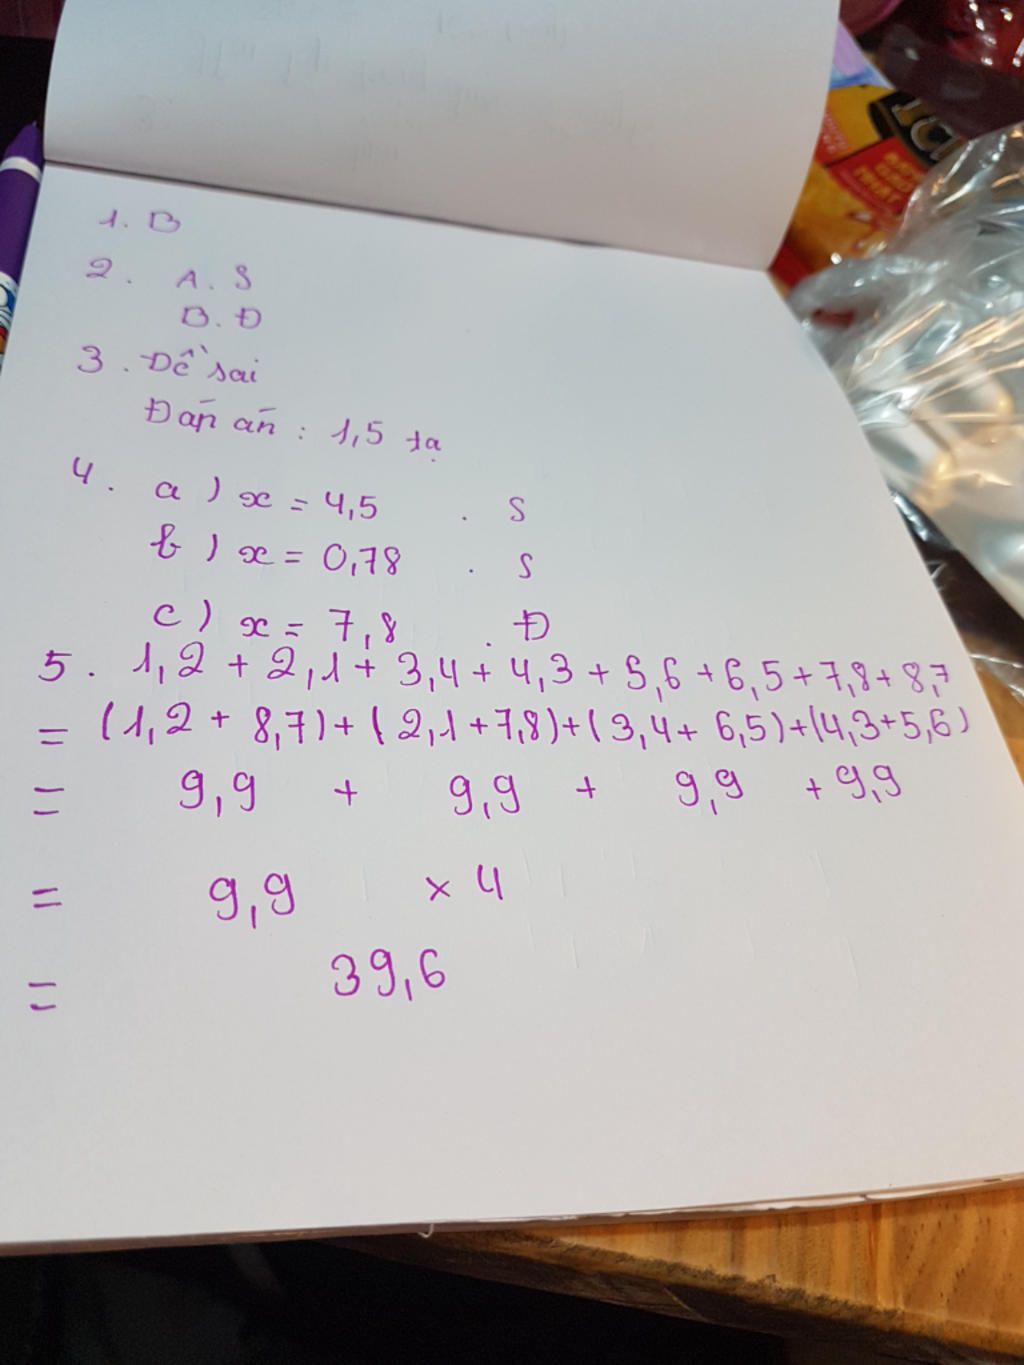 1. B
2. A. S
B. Đ
3. Đề sai
Đáp án : 1,5 tạ
4. a) x = 4,5 . S
b) x = 0,78 . S
c) x = 7,8 . Đ
5. 1,2 + 2,1 + 3,4 + 4,3 + 5,6 + 6,5 + 7,8 + 8,7
= (1,2 + 8,7) + (2,1 + 7,8) + (3,4 + 6,5) + (4,3 + 5,6)
= 9,9 + 9,9 + 9,9 + 9,9
= 9,9 x 4
= 39,6